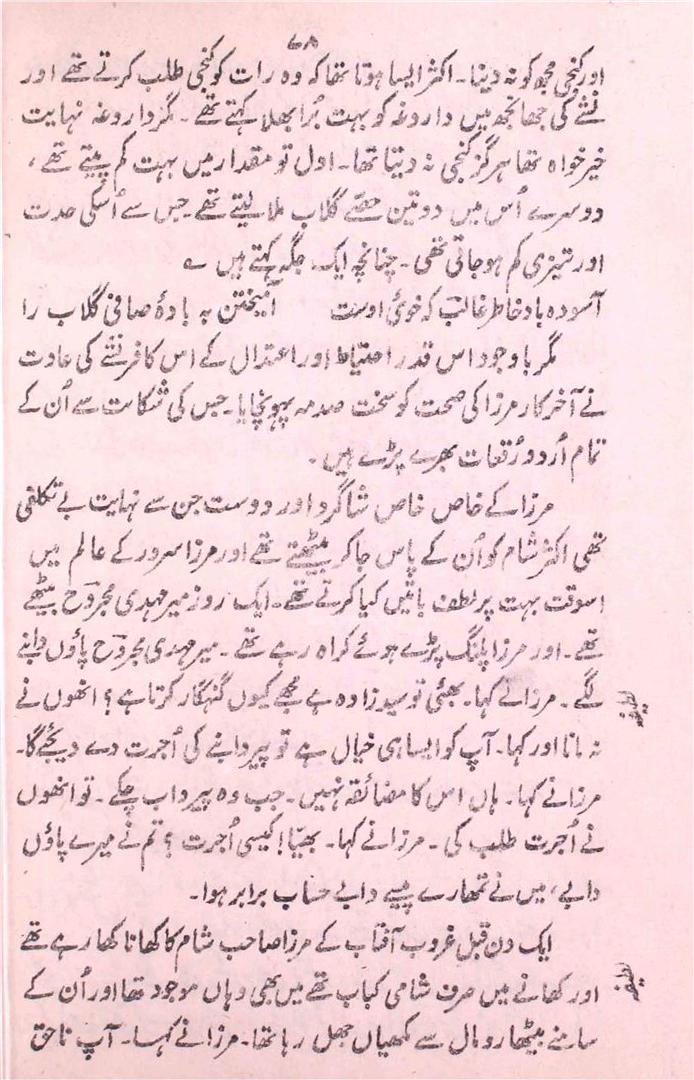 ۶۸
اور کنجی مجھ کو نہ دینا۔ اکثر ایسا ہوتا تھا کہ وہ رات کو کنجی طلب کرتے تھے اور
نشے کی جھانجھ میں داروغہ کو بہت بُرا بھلا کہتے تھے۔ مگر داروغہ نہایت
خیر خواہ تھا ہرگز کنجی نہ دیتا تھا۔ اول تو مقدار میں بہت کم پیتے تھے،
دوسرے اُس میں دو تین حصّے گلاب ملا لیتے تھے جس سے اُسکی حدت
اور تیزی کم ہو جاتی تھی۔ چنانچہ ایک جگہ کہتے ہیں ؎
آسودہ باد خاطر غالبؔ کہ خوئ اوست آمیختن بہ بادۂ صافی گلاب را
مگر باوجود اس قدر احتیاط اور اعتدال کے اس کافر نشے کی عادت
نے آخر کار مرزا کی صحت کو سخت صدمہ پہونچایا۔ جس کی شکایت سے اُن کے
تمام اُردو رُقعات بھرے پڑے ہیں۔
مرزا کے خاص خاص شاگرد اور دوست جن سے نہایت بے تکلفی
تھی اکثر شام کو اُن کے پاس جا کر بیٹھتے تھے اور مرزا سرور کے عالم میں
اسوقت بہت پر لطف باتیں کیا کرتے تھے۔ ایک روز میر مہدی مجروحؔ بیٹھے
تھے۔ اور مرزا پلنگ پڑے ہوئے کراہ رہے تھے۔ میر مہدی مجروحؔ پاؤں دابنے
لگے۔ مرزا نے کہا۔ بھئی تو سید زادہ ہے مجھے کیوں گنہگار کرتا ہے؟ انھوں نے
لطیفہ
نہ مانا اور کہا۔ آپ کو ایسا ہی خیال ہے تو پیر دابنے کی اُجرت دے دیجئے گا۔
مرزا نے کہا۔ ہاں اس کا مضائقہ نہیں۔ جب وہ پیر داب چکے۔ تو انھوں
نے اُجرت طلب کی۔ مرزا نے کہا۔ بھیّا! کیسی اُجرت؟ تم نے میرے پاؤں
دابے، میں نے تمھارے پیسے دابے حساب برابر ہوا۔
ایک دن قبل غروب آفتاب کے مرزا صاحب شام کا کھانا کھا رہے تھے
اور کھانے میں صرف شامی کباب تھے میں بھی وہاں موجود تھا اور اُن کے
لطیفہ
سامنے بیٹھا رومال سے مکھیاں جھل رہا تھا۔ مرزا نے کہا۔ آپ ناحق